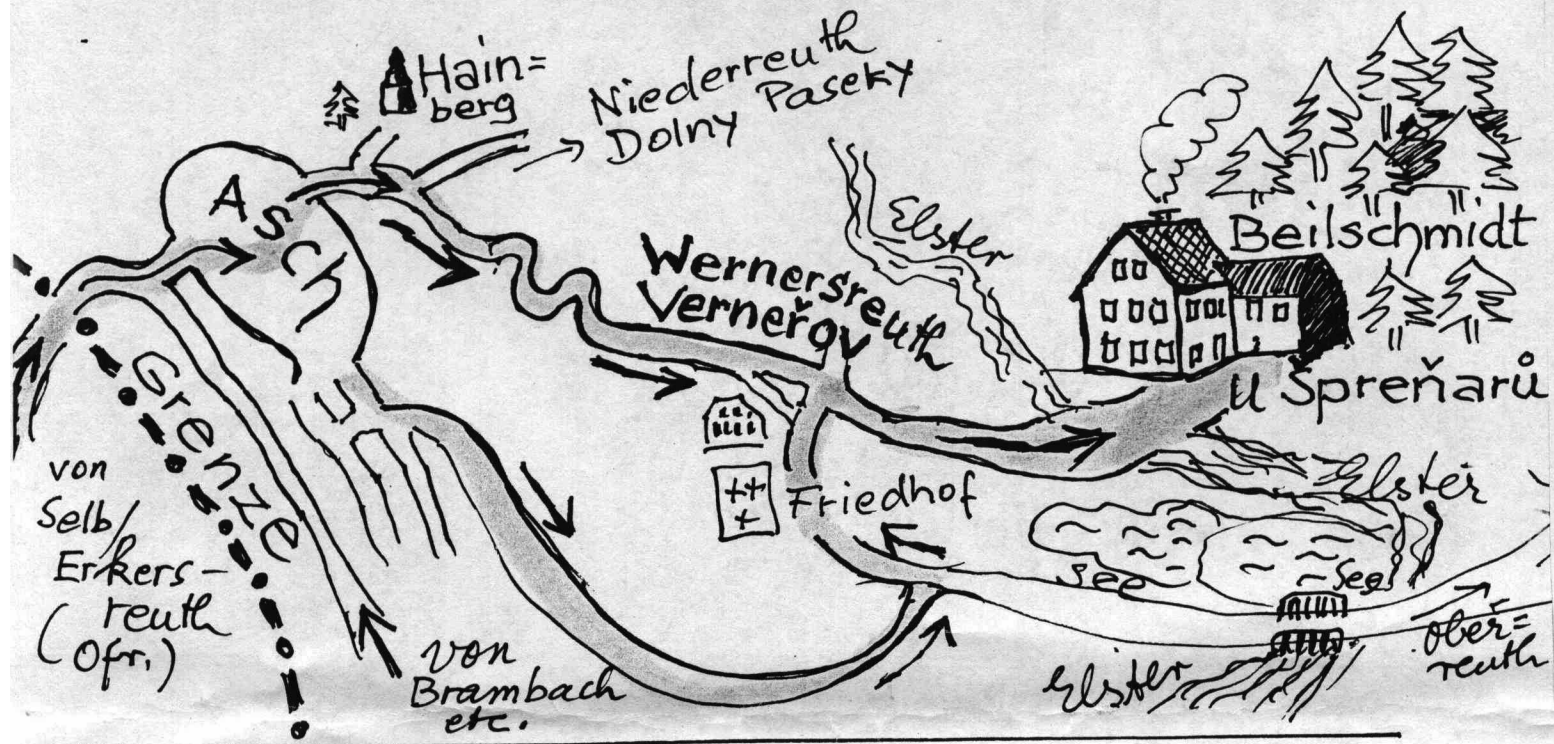 Hain=
berg
Niederreuth
Dolny Paseky
Asch
Elster
Beilschmidt
Wernersreuth
Verneřov
U Špreňarů
Grenze
von
Selb/
Erkers-
reuth
(Ofr.)
Friedhof
Elster
See
See
ober=
reuth
von
Brambach
etc.
Elster